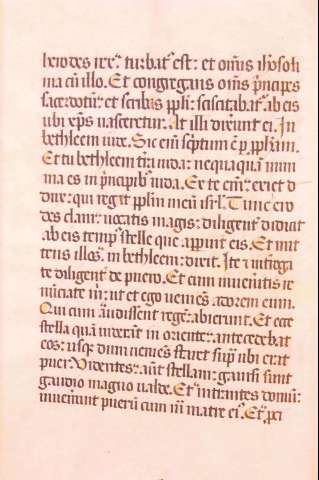 herodes rex: turbat᷒ est: et oms iherosoli
ma cū illo. Et congregans oms p̄ncipes
sacerdotū: et scribas ppli: sciscitabat᷒ ab eis
ubi xp̄s nasceretur. At illi dixerūt ei. In
bethleem iude. Sic em̄ sc̄ptum ē p̄ pphetam.
Et tu bethleem trā iuda: nequaquā mini
ma es in p̄ncipib᷒ iuda. Ex te em̄: exiet d
dux: qui regat pplm meū isrl. Tunc ero
des clam: uocatis magis: diligent᷒ didicit
ab eis temp᷒ stelle que apparuit eis. Et mit
tens illos: in bethleem: dixit. Ite ⁊ intᷓroga
te diligent᷒ de puero. Et cum inueneritis re
nūciate m̄: ut et ego ueniēs: adorem eum.
Qui cum audissent regē: abierunt. Et ecce
stella quā uiderūt in oriente: antecedebat
eos: usq dum ueniēs staret sup᷒ ubi erat
puer. Videntes: aūt stellam: gauisi sunt
gaudio magno ualde. Et intrantes domū:
inuenerūt puerū cum matre ei᷒. Et